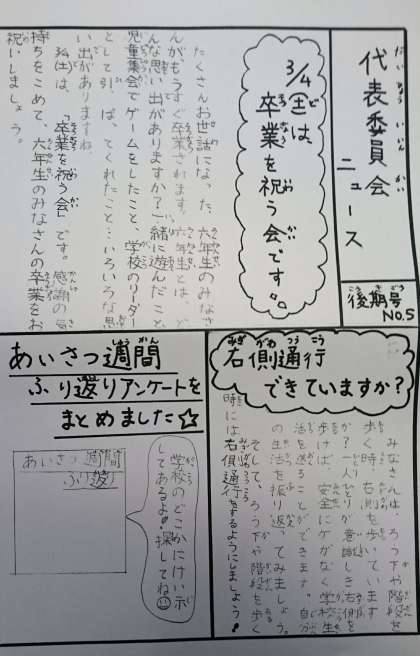 代表委員会
ニュース
後期号
NO.5
3/4(土)は、
卒業を祝う会です。
たくさんお世話になった、六年生のみなさ
んが、もうすぐ卒業されます。六年生とは、ど
んな思い出がありますか?一緒に遊んだこと、
児童集会でゲームをしたこと、学校のリーダー
として引っぱってくれたこと…いろいろな思
い出がありますね。
3/4(土)は、「卒業を祝う会」です。感謝の気
持ちをこめて、六年生のみなさんの卒業をお
祝いしましょう。
右側通行
できていますか?
みなさんは、ろう下や階段を
歩く時、右側を歩いています
か?一人ひとりが意識しき右側を
歩けば、安全にケガなく学校生
活を送ることができます。自分
の生活を振り返ってみましょう。
そして、ろう下や階段を歩く
時には右側通行をするようにしましょう!
あいさつ週間
ふり返りアンケートを
まとめました☆
学校のどこかにけい示
してあるよ!探してね
あいさつ週間
ふり返り